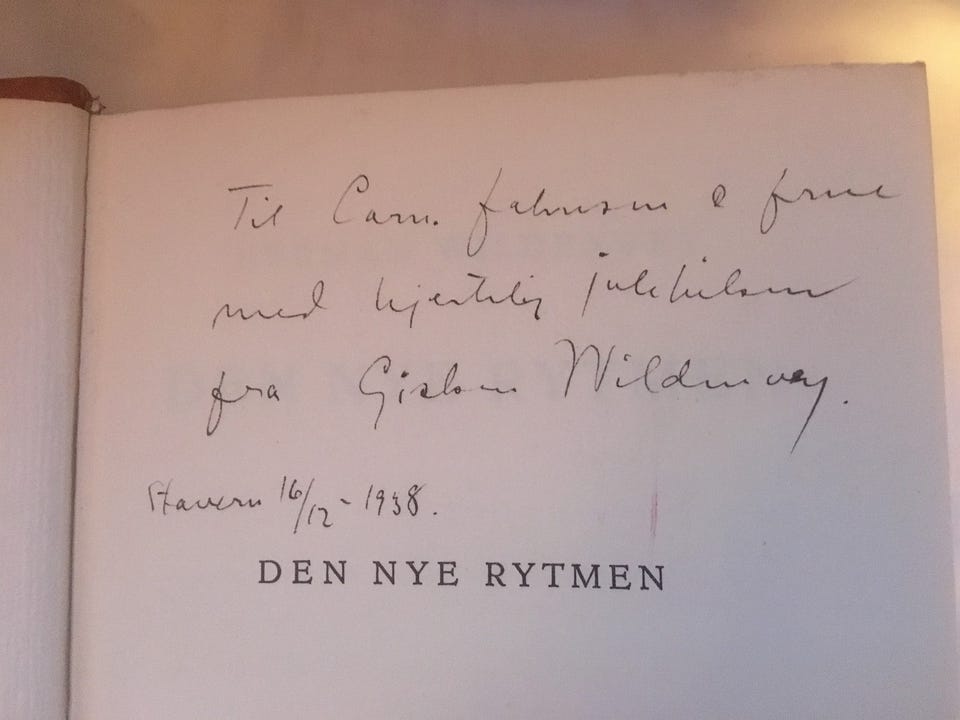 Til Carn. Jahnsen & frue
med hjertelig julehilsen
fra Gisken Wildenvey.
Stavern 16/12 - 1938.
DEN NYE RYTMEN